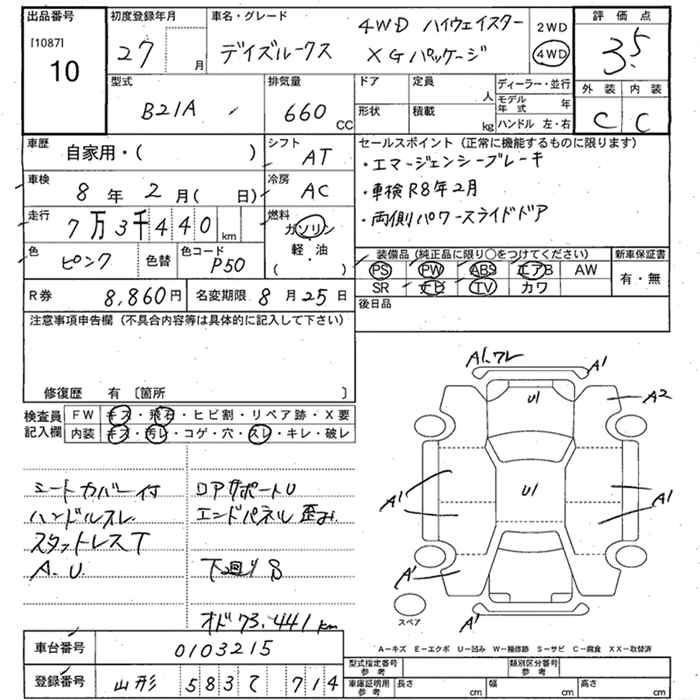 出品番号
[1087]
10
初度登録年月
27 月
車名・グレード
4WD ハイウェイスター
デイズルークス XGパッケージ
2WD
4WD
評価点
3.5
外装 内装
C C
型式
B21A
排気量
660 CC
ドア
形状
定員
人
積載
kg
ディーラー・並行
モデル年式 年
ハンドル 左・右
車歴
自家用・( )
シフト
AT
車検
8年2月( 日)
冷房
AC
走行
7万3千440km
燃料
ガソリン
軽・油
( )
色
ピンク
色替
色コード
P50
R券
8,860円
名変期限 8月25日
セールスポイント (正常に機能するものに限ります)
・エマージェンシーブレーキ
・車検R8年2月
・両側パワースライドドア
装備品(純正品に限り○をつけてください)
PS PW ABS エアB AW
SR ナビ TV カワ
新車保証書
有・無
後日品
注意事項申告欄 (不具合内容等は具体的に記入して下さい)
修復歴 有 〔箇所 〕
検査員記入欄
FW キズ・飛石・ヒビ割・リペア跡・X要
内装 キズ・汚レ・コゲ・穴・スレ・キレ・破レ
シートカバー付
ハンドルスレ
スタットレスT
A.U
コアサポートU
エンドパネル歪み
下回りS
オド73.441km
A1.ワレ
A1
U1
A2
A1
U1
A1
A1
A1
スペア
A-キズ E-エクボ U-凹み W-補修跡 S-サビ C-腐食 XX-取替済
車台番号
0103215
登録番号
山形 583 て 714
型式指定番号 参考
類別区分番号 参考
車庫証明用 参考
長さ cm
幅 cm
高さ cm